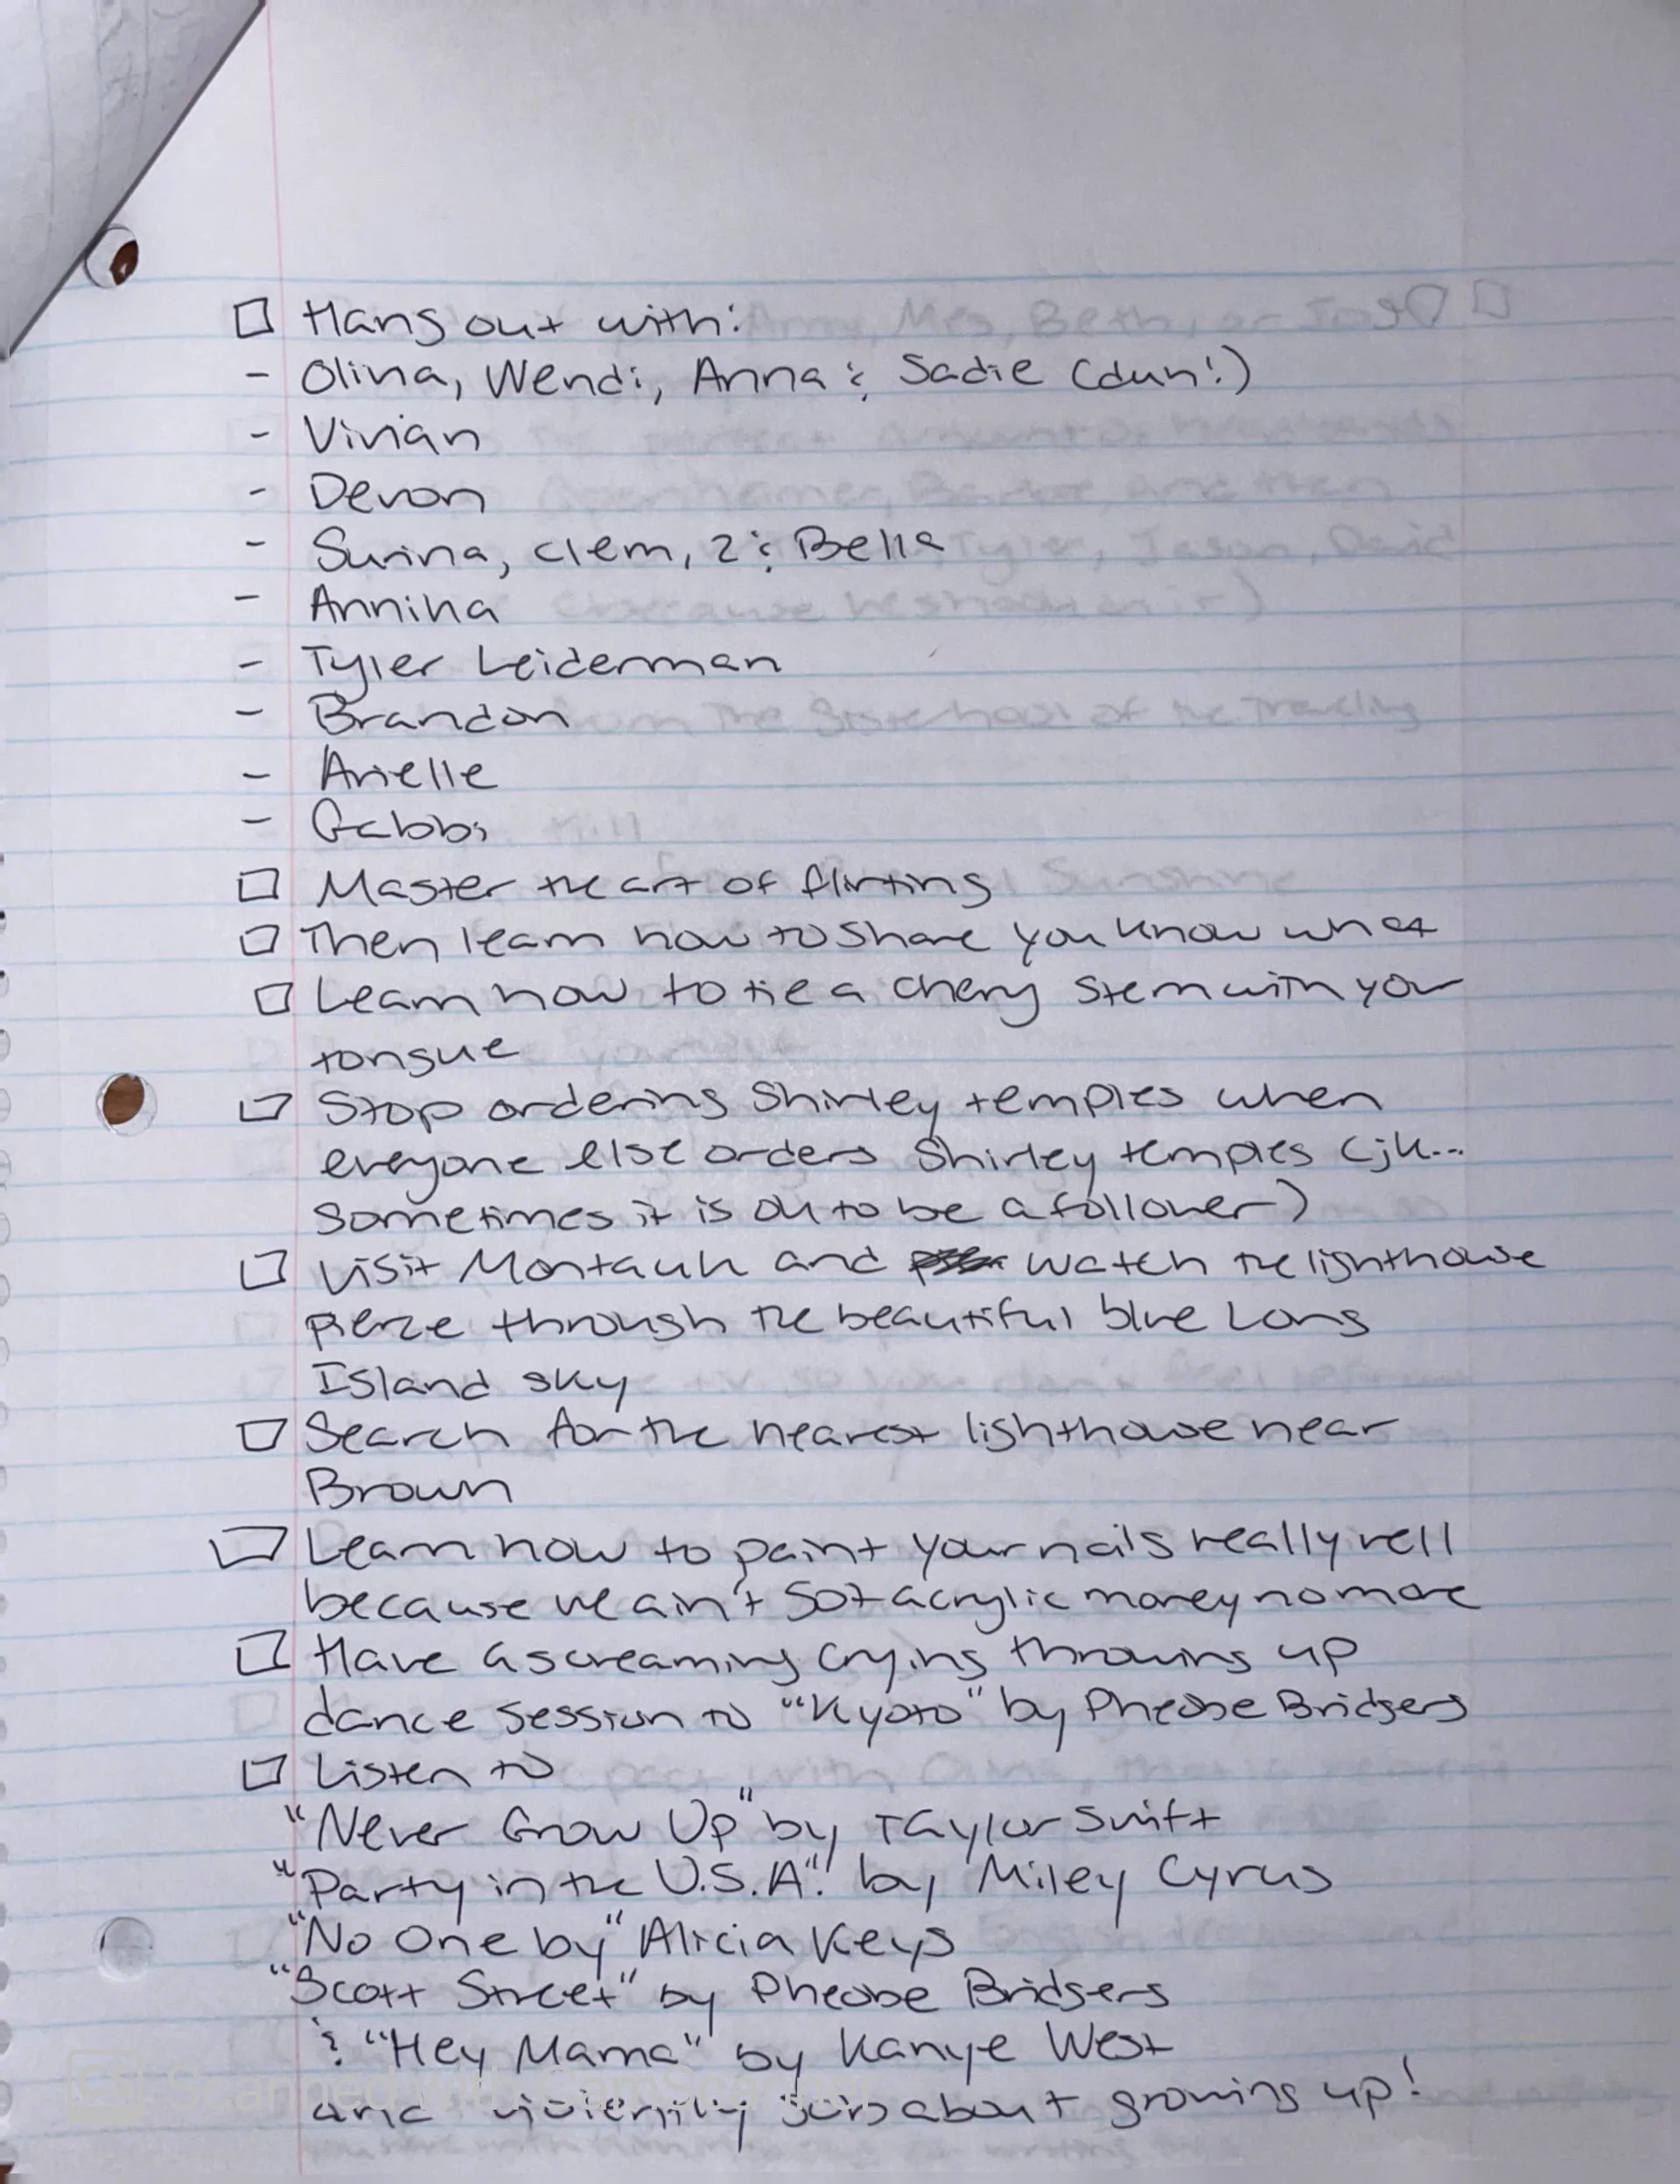 ☐ Hang out with:
- Olina, Wendi, Anna & Sadie (duh!)
- Vivian
- Devon
- Surina, Clem, 2 & Bella
- Annina
- Tyler Leiderman
- Brandon
- Arielle
- Gabbi
☐ Master the art of flirting
☐ Then learn how to share you know what
☐ Learn how to tie a cherry stem with your
tongue
☐ Stop ordering Shirley temples when
everyone else orders Shirley temples (jk...
Sometimes it is ok to be a follower)
☐ Visit Montauk and watch the lighthouse
pierce through the beautiful blue Long
Island sky
☐ Search for the nearest lighthouse near
Brown
☐ Learn how to paint your nails really well
because we ain't got acrylic money no more
☐ Have a screaming crying throwing up
dance session to "Kyoto" by Pheobe Bridgers
☐ Listen to
"Never Grow Up" by Taylor Swift
"Party in the U.S.A." by Miley Cyrus
"No One by" Alicia Keys
"Scott Street" by Pheobe Bridgers
& "Hey Mama" by Kanye West
and violently sob about growing up!